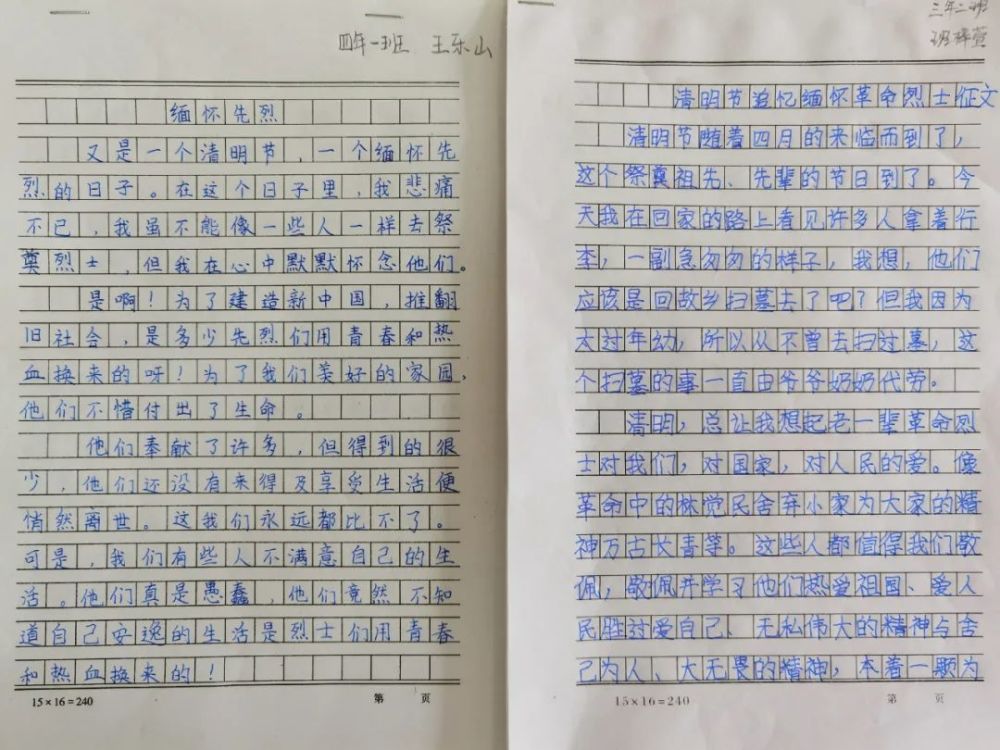 四年一班 王乐山
缅怀先烈
又是一个清明节，一个缅怀先
烈的日子。在这个日子里，我悲痛
不已，我虽不能像一些人一样去祭
奠烈士，但我在心中默默怀念他们。
是啊！为了建造新中国，推翻
旧社会，是多少先烈们用青春和热
血换来的呀！为了我们美好的家园，
他们不惜付出了生命。
他们奉献了许多，但得到的很
少，他们还没有来得及享受生活便
悄然离世。这我们永远都比不了。
可是，我们有些人不满意自己的生
活。他们真是愚蠢，他们竟然不知
道自己安逸的生活是烈士们用青春
和热血换来的！
15×16=240 第 页
三年二班
班梓萱
清明节追忆缅怀革命烈士征文
清明节随着四月的来临而到了，
这个祭奠祖先、先辈的节日到了。今
天我在回家的路上看见许多人拿着行
李，一副急匆匆的样子，我想，他们
应该是回故乡扫墓去了吧？但我因为
太过年幼，所以从不曾去扫过墓，这
个扫墓的事一直由爷爷奶奶代劳。
清明，总让我想起老一辈革命烈
士对我们，对国家，对人民的爱。像
革命中的林觉民舍弃小家为大家的精
神万古长青等。这些人都值得我们敬
佩，敬佩并学习他们热爱祖国、爱人
民胜过爱自己、无私伟大的精神与舍
己为人、大无畏的精神，本着一颗为
15×16=240 第 页